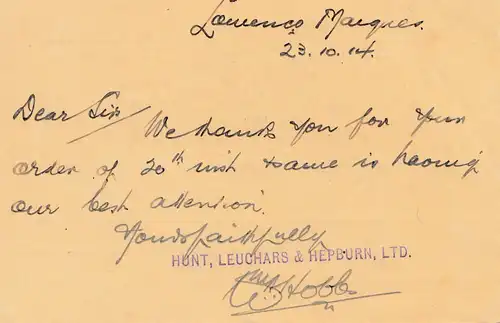 Lourenco Marques
23.10.14.
Dear Sir
We thank you for your
order of 20th inst & same is having
our best attention.
Yours faithfully
HUNT, LEUCHARS & HEPBURN, LTD.
Hobbs